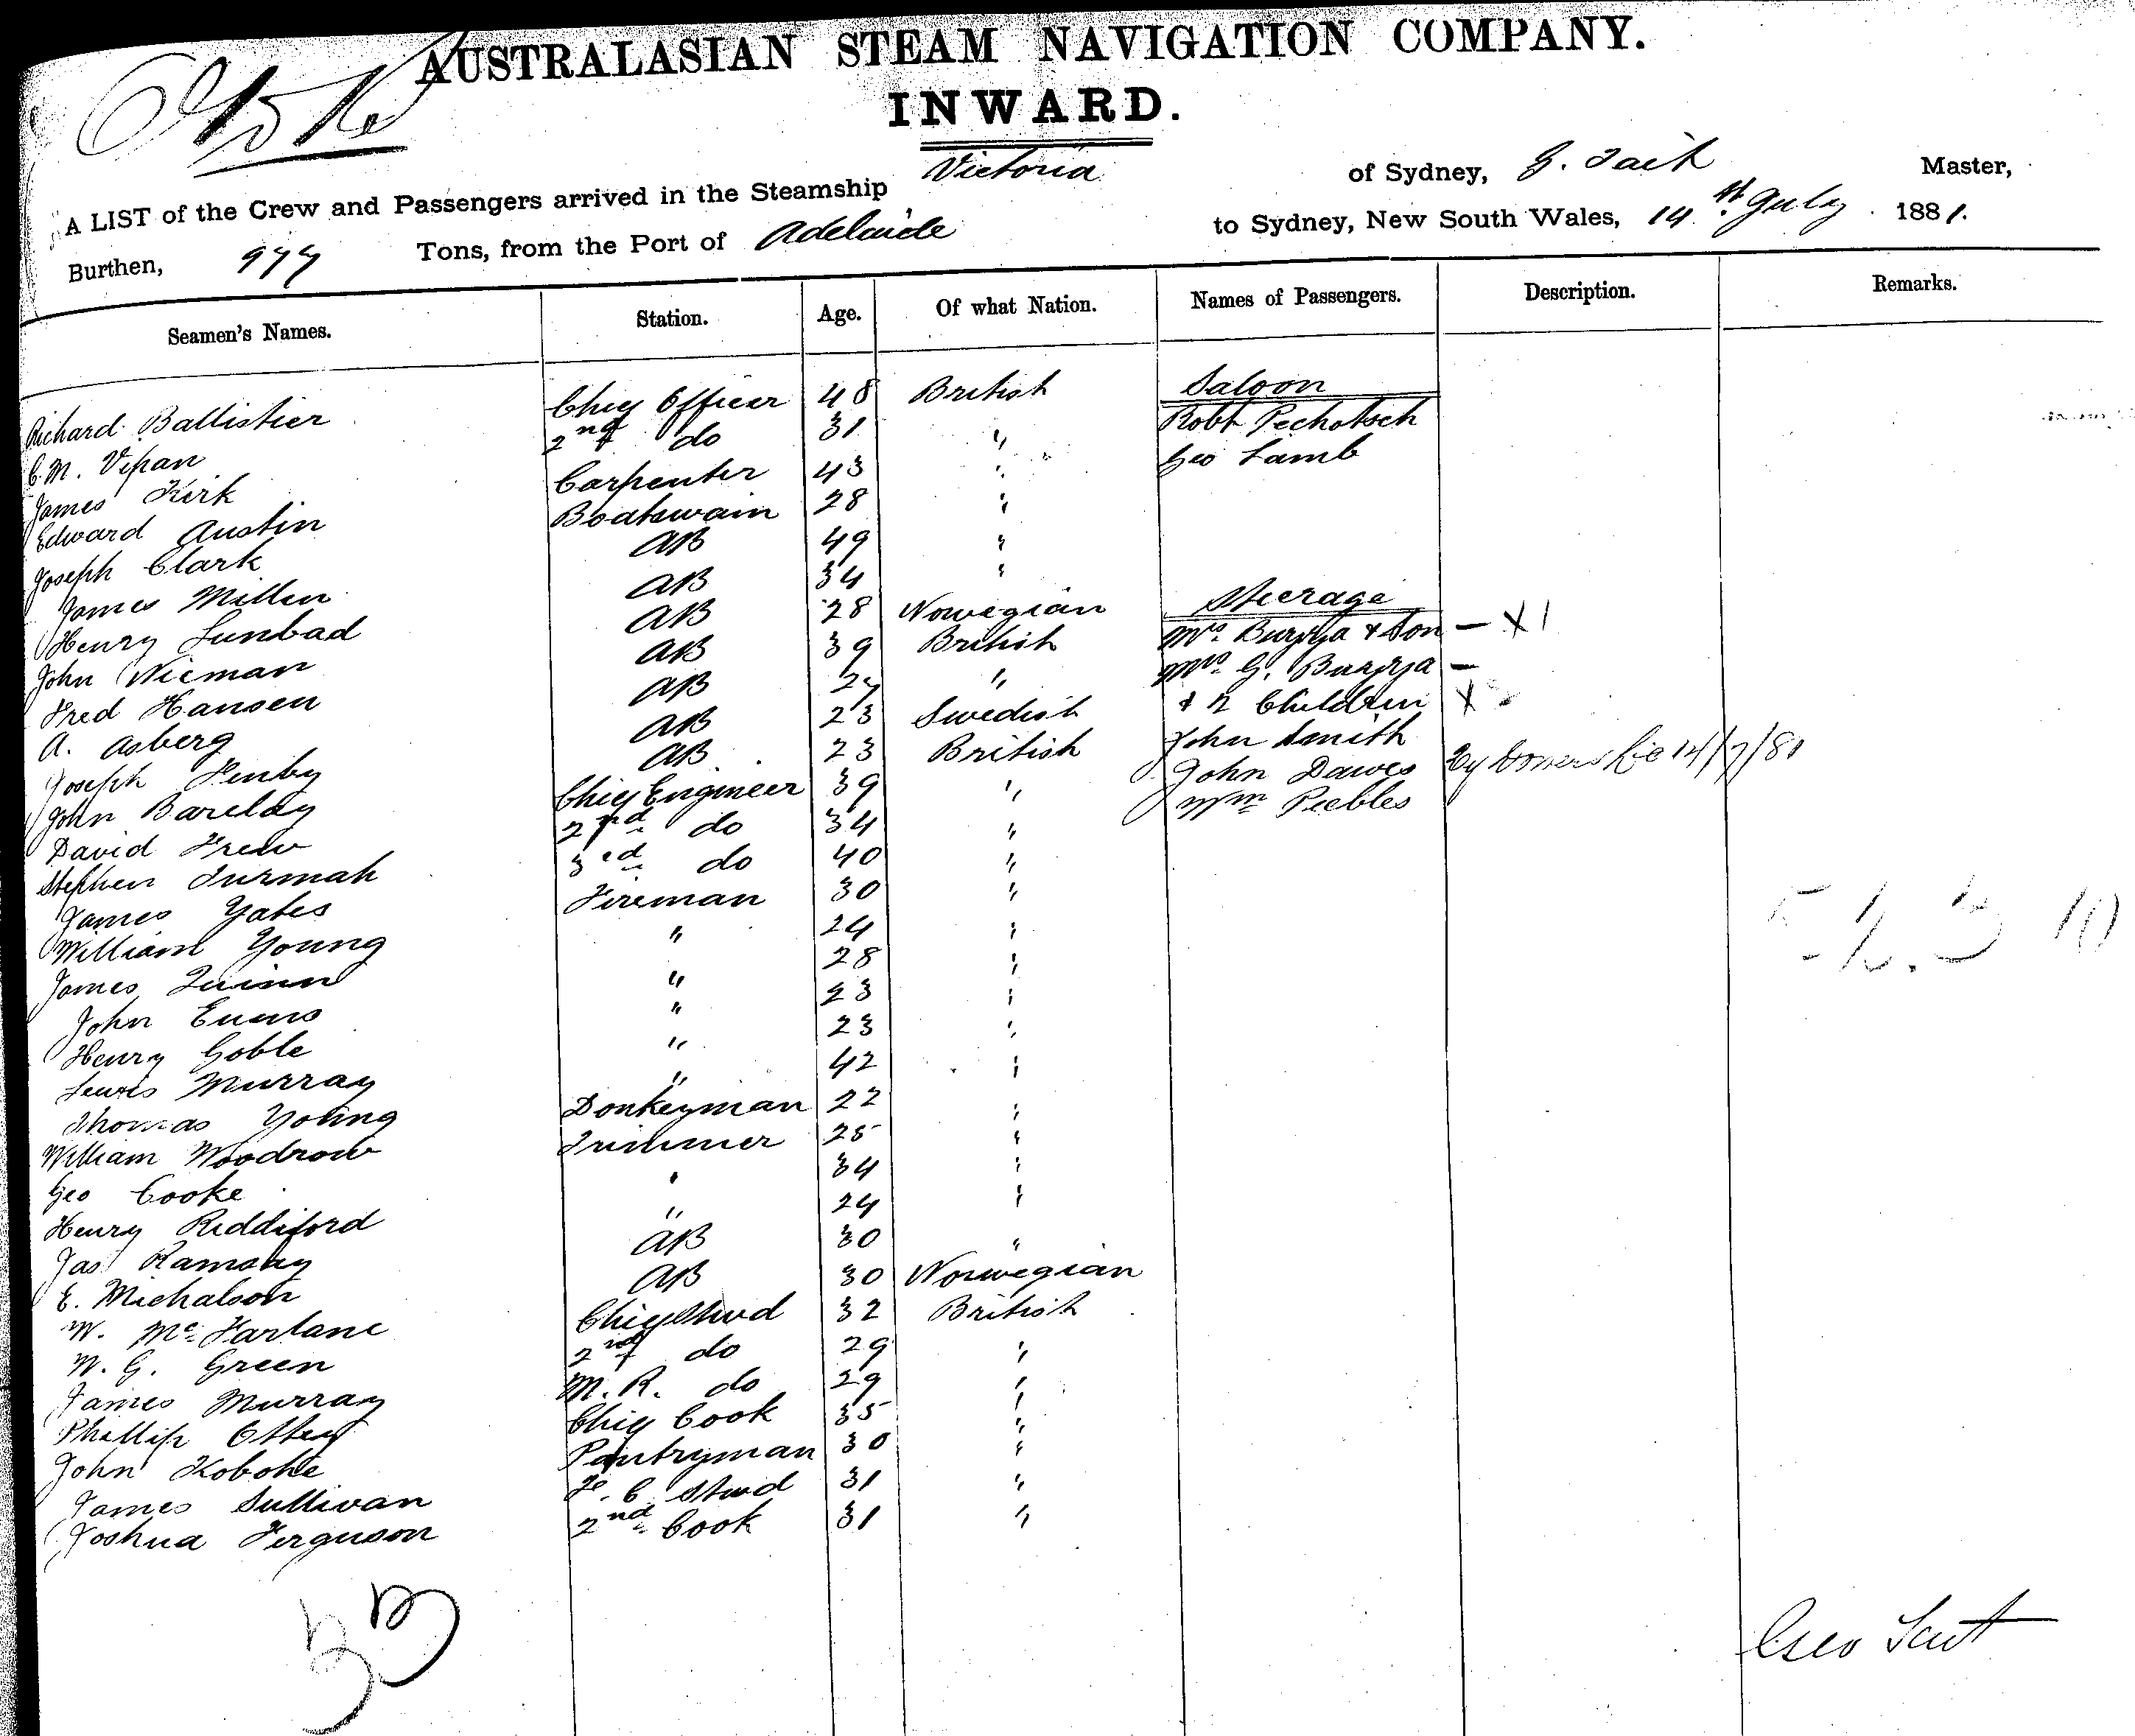 AUSTRALASIAN STEAM NAVIGATION COMPANY.
INWARD.
A LIST of the Crew and Passengers arrived in the Steamship Victoria of Sydney, G. Tait Master,
Burthen, 977 Tons, from the Port of Adelaide to Sydney, New South Wales, 14th July 1881.
Seamen's Names. Station. Age. Of what Nation. Names of Passengers. Description. Remarks.
Saloon
Richard Ballistier Chief Officer 48 British Robt Pechotsch
C. M. Vepan 2nd do 31 " Geo Lamb
James Kirk Carpenter 43 "
Edward Austin Boatswain 28 "
Joseph Clark AB 49 "
James Millen AB 34 " Steerage
Henry Lunbad AB 28 Nowegian Mrs. Buzzza & Son — X 1
John Nieman AB 39 British Mrs. G. Buzzza —
Fred Hansen AB 27 " & 2 Children X
A. Asberg AB 23 Swedish John Smith
Joseph Fenby AB 23 British John Dawes 14/7/81
John Barclay Chief Engineer 39 " Wm Peebles
David Frew 2nd do 34 "
Stephen Turmah 3rd do 40 "
James Yates Fireman 30 "
William Young " 24 "
James Quinn " 28 "
John Evans " 23 "
Henry Goble " 23 "
Lewis Murray " 42 "
Thomas Young Donkeyman 22 "
William Woodrow Trimmer 25 "
Geo Cooke " 34 "
Henry Riddiford " 24 "
Jas Ramsay AB 30 "
E. Michalson AB 30 Norwegian
W. McFarlane Chief Stwd 32 British
W. G. Green 2nd do 29 "
James Murray M. R. do 29 "
Phillip Ottey Chief Cook 35 "
John Kobohe Pantryman 30 "
James Sullivan F. C. Stwd 31 "
Joshua Ferguson 2nd Cook 31 "
33
Geo Tait